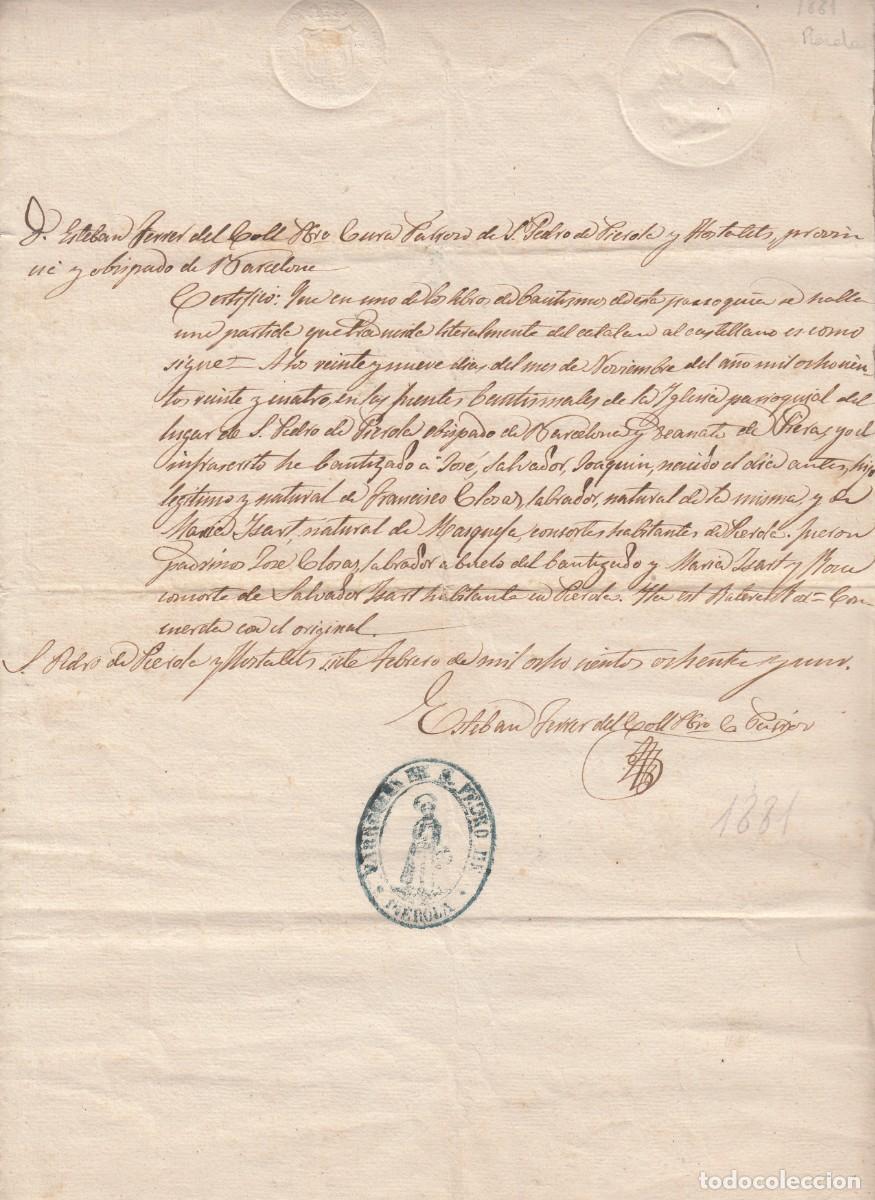 1881
Pierola
D. Esteban Ferrer del Coll Pbro Cura Párroco de S. Pedro de Pierola y Hostalets, provin
cia y obispado de Barcelona
Certifico: Que en uno de los libros de bautismos de esta parroquia se halla
una partida que traducida literalmente del catalan al castellano es como
sigue = A los veinte y nueve dias del mes de Noviembre del año mil ochocien
tos veinte y cuatro, en las fuentes bautismales de la Iglesia parroquial del
lugar de S. Pedro de Pierola obispado de Barcelona y deanato de Pieras, yo el
infrascrito he bautizado á José, Salvador, Joaquin, nacido el dia antes, hijo
legitimo y natural de Francisco Closas, labrador, natural de la misma y de
Maria Isart, natural de Masquefa, consortes habitantes de Pierola. fueron
padrinos José Closas, labrador abuelo del bautizado y Maria Isart y
consorte de Salvador Isart habitante en Pierola. Ita est = Con
cuerda con el original.
S. Pedro de Pierola y Hostalets siete febrero de mil ocho cientos ochenta y uno.
Esteban Ferrer del Coll Pbro C. Párroco
1881
PARROQUIA DE S. PEDRO DE
PIEROLA
todocoleccion